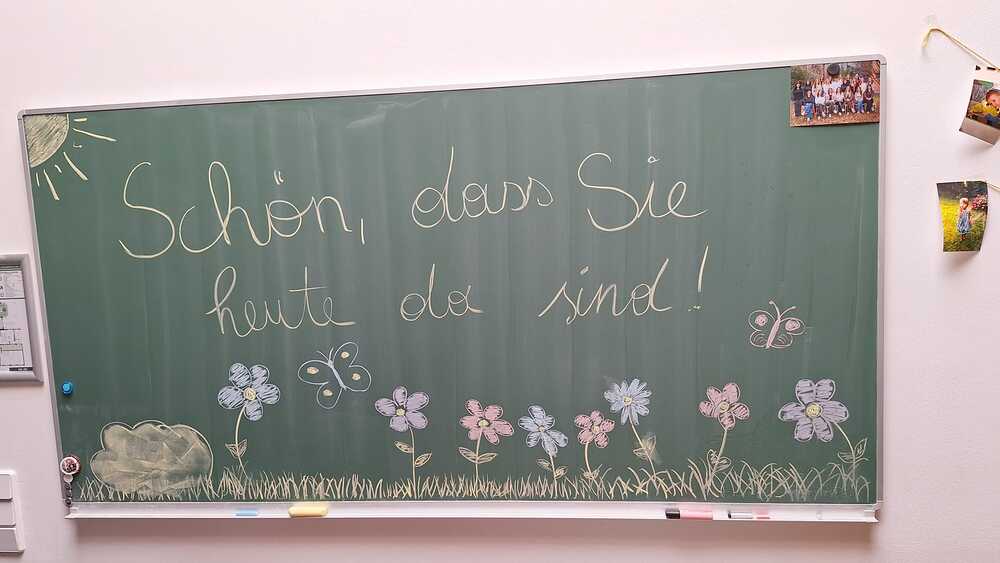 Schön, dass Sie
heute da sind!